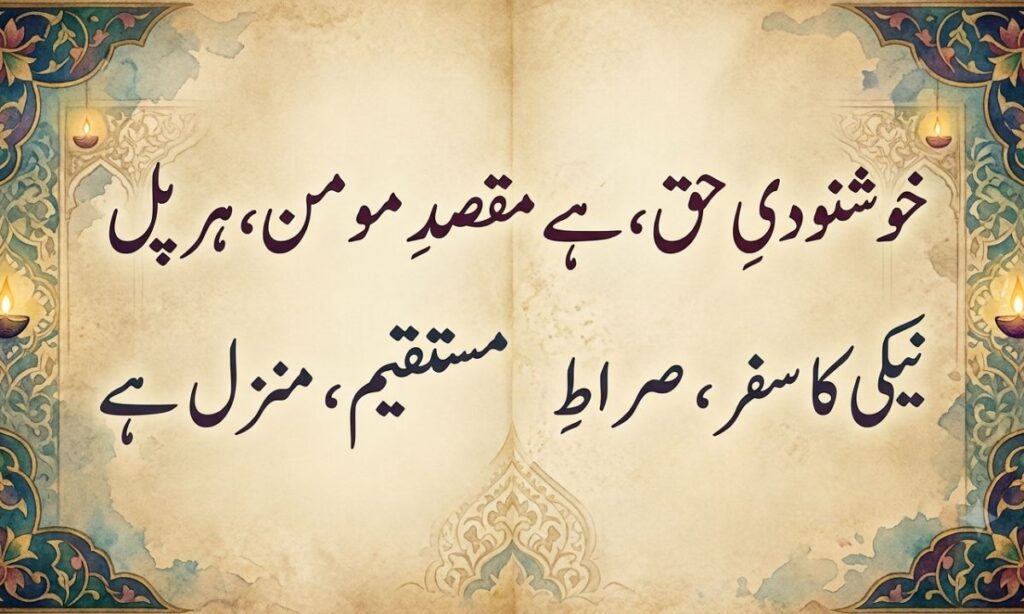 خوشنودیِ حق، ہے مقصدِ مومن، ہر پل
نیکی کا سفر، صراطِ مستقیم، منزل ہے